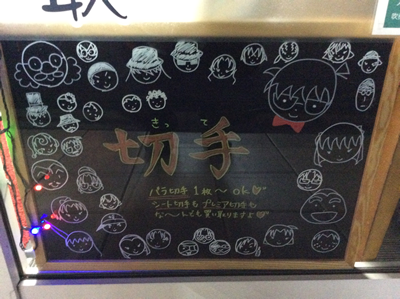 きって
切手
バラ切手1枚〜ok♡
シート切手もプレミア切手も
な〜んでも買い取りますよ♡